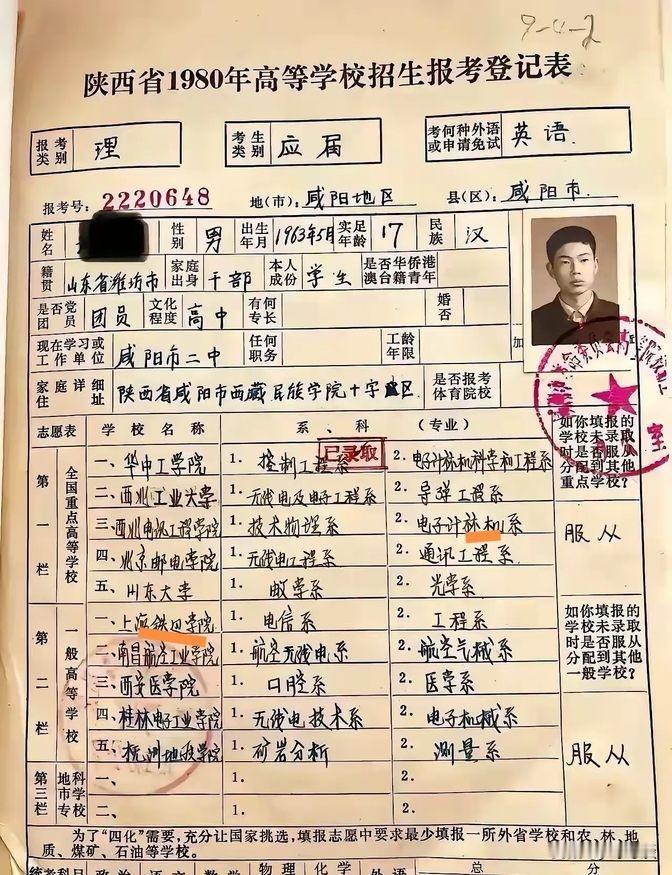 9-4-2
陕西省1980年高等学校招生报考登记表
报考类别 理 考生类别 应届 考何种外语或申请免试 英语
报考号: 2220648 地(市): 咸阳地区 县(区): 咸阳市
姓名 性别 男 出生年月 1963年5月 实足年龄 17 民族 汉
籍贯 山东省潍坊市 家庭出身 干部 本人成份 学生 是否华侨港澳台籍青年
是否党团员 团员 文化程度 高中 有何专长 婚否
现在学习或工作单位 咸阳市二中 任何职务 工龄年限 加
家庭详细住址 陕西省咸阳市西藏民族学院十字区 是否报考体育院校
志愿表 学校名称 系、科 (专业) 如你填报的学校未录取时是否服从分配到其他重点学校?
已录取
第一栏 全国重点高等学校
一、华中工学院 1. 控制工程系 2. 电子计标机科学和工程系
二、西北工业大学 1. 无线电及电子工程系 2. 导弹工程系
三、西北电讯工程学院 1. 技术物理系 2. 电子计标机系 服从
四、北京邮电学院 1. 无线电工程系 2. 通讯工程系
五、山东大学 1. 数学系 2. 光学系
第二栏 一般高等学校
一、上海铁道学院 1. 电信系 2. 工程系 如你填报的学校未录取时是否服从分配到其他一般学校?
二、南昌航空工业学院 1. 航空无线电系 2. 航空气械系
三、西安医学院 1. 口腔系 2. 医学系
四、桂林电子工业学院 1. 无线电技术系 2. 电子机械系 服从
五、杭州地质学院 1. 矿岩分析 2. 测量系
第三栏 地市 科学专校
一、 1. 2.
二、 1. 2.
为了“四化”需要,充分让国家挑选,填报志愿中要求最少填报一所外省学校和农、林、地
质、煤矿、石油等学校。
统考科目 政治 语文 数学 物理 化学 外语 总 分